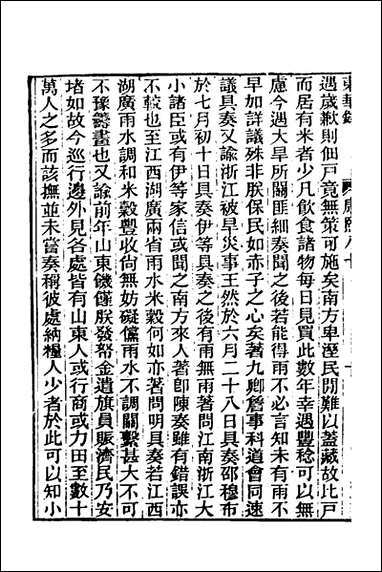 東華錄　康熙八十
遇歲歉則佃戶竟無策可施矣南方卑溼民間難以蓋藏故比戶
而居有米者少凡飲食諸物每日見買此數年幸遇豐稔可以無
慮今遇大旱所關匪細奏聞之後若能得雨不必言知未有雨不
早加詳議殊非朕保民如赤子之心矣著九卿詹事科道會同速
議具奏又諭浙江被旱災事王然於六月二十八日具奏邵穆布
於七月初十日具奏伊等具奏之後有雨無雨著問江南浙江大
小諸臣或有伊等家信或聞之南方來人著卽陳奏雖有錯誤亦
不較也至江西湖廣兩省雨水米穀何如亦著問明具奏若江西
湖廣雨水調和米穀豐收尙無妨礙儻雨水不調關繫甚大不可
不豫籌畫也又諭前年山東饑僅朕發帑金遺旗員賑濟民乃安
堵如故今巡行邊外見各處皆有山東人或行商或力田至數十
萬人之多而該撫並未嘗奏稱彼處納糧人少者於此可以知小